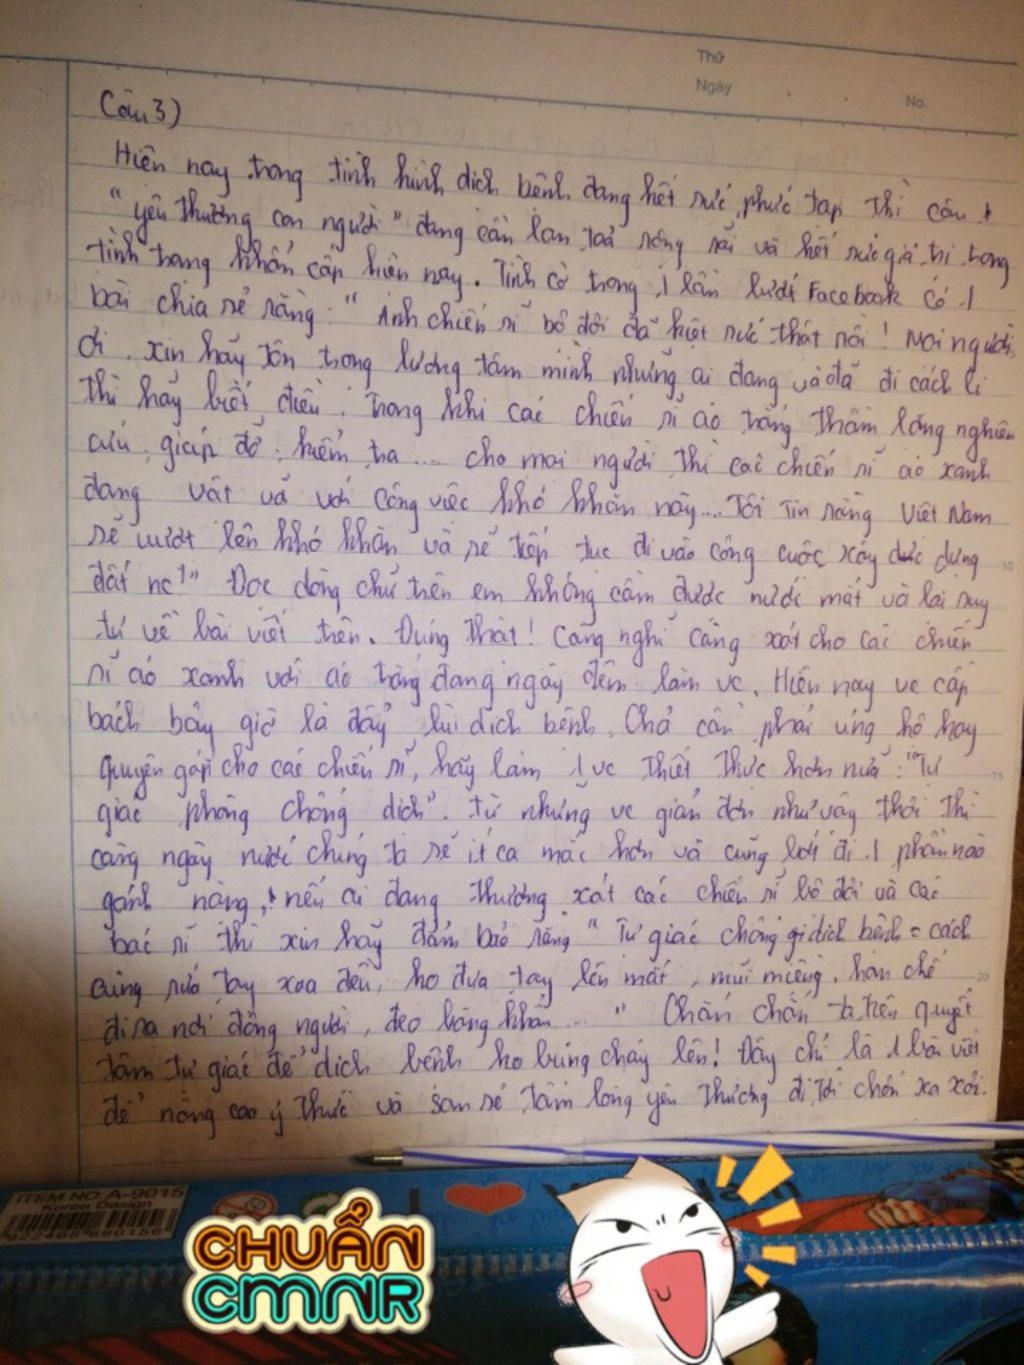 Thứ
Ngày
No.
Câu 3)
Hiện nay trong tình hình dịch bệnh đang hết sức phức tạp thì câu
"yêu thương con người" đang cần lan toả rộng rãi và hết sức giá trị trong
tình trạng khẩn cấp hiện nay. Tình cờ trong 1 lần lướt Facebook có 1
bài chia sẻ rằng: "Anh chiến sĩ bộ đội đã kiệt sức thật rồi! Mọi người
ơi, xin hãy tôn trọng lương tâm mình những ai đang và đã đi cách li
thì hãy biết điều. Trong khi các chiến sĩ áo trắng thầm lặng nghiên
cứu, giúp đỡ, kiểm tra.... cho mọi người thì các chiến sĩ áo xanh
đang vất vả với công việc khó khăn này.... Tôi tin rằng Việt Nam
sẽ vượt lên khó khăn và sẽ tiếp tục đi vào công cuộc xây dựng
đất nc!" Đọc dòng chữ trên em không cầm được nước mắt và lại suy
tư về bài viết trên. Đúng thật! Càng nghĩ càng xót cho các chiến
sĩ áo xanh với áo trắng đang ngày đêm làm vc. Hiện nay vc cấp
bách bây giờ là đẩy lùi dịch bệnh. Chả cần phải ủng hộ hay
quyên góp cho các chiến sĩ, hãy làm 1 vc thiết thực hơn nữa: "Tự
giác phòng chống dịch". Từ những vc giản đơn như vậy thôi thì
càng ngày nước chúng ta sẽ ít ca mắc hơn và cũng bớt đi 1 phần nào
gánh nặng, nếu ai đang thương xót các chiến sĩ bộ đội và các
bác sĩ thì xin hãy đảm bảo rằng "Tự giác chống dịch bệnh = cách
cùng rửa tay xoa đều, ho đưa tay lên mắt, mũi miệng, hạn chế
đi ra nơi đông người, đeo băng khẩu...." Chần chừ quyết
tâm tự giác để dịch bệnh ho bùng cháy lên! Đây chỉ là 1 bài viết
để nâng cao ý thức và san sẻ tấm lòng yêu thương đi tới chốn xa xôi.
ITEM NO: A-9015
Korea Design
CHUẨN
CMNR